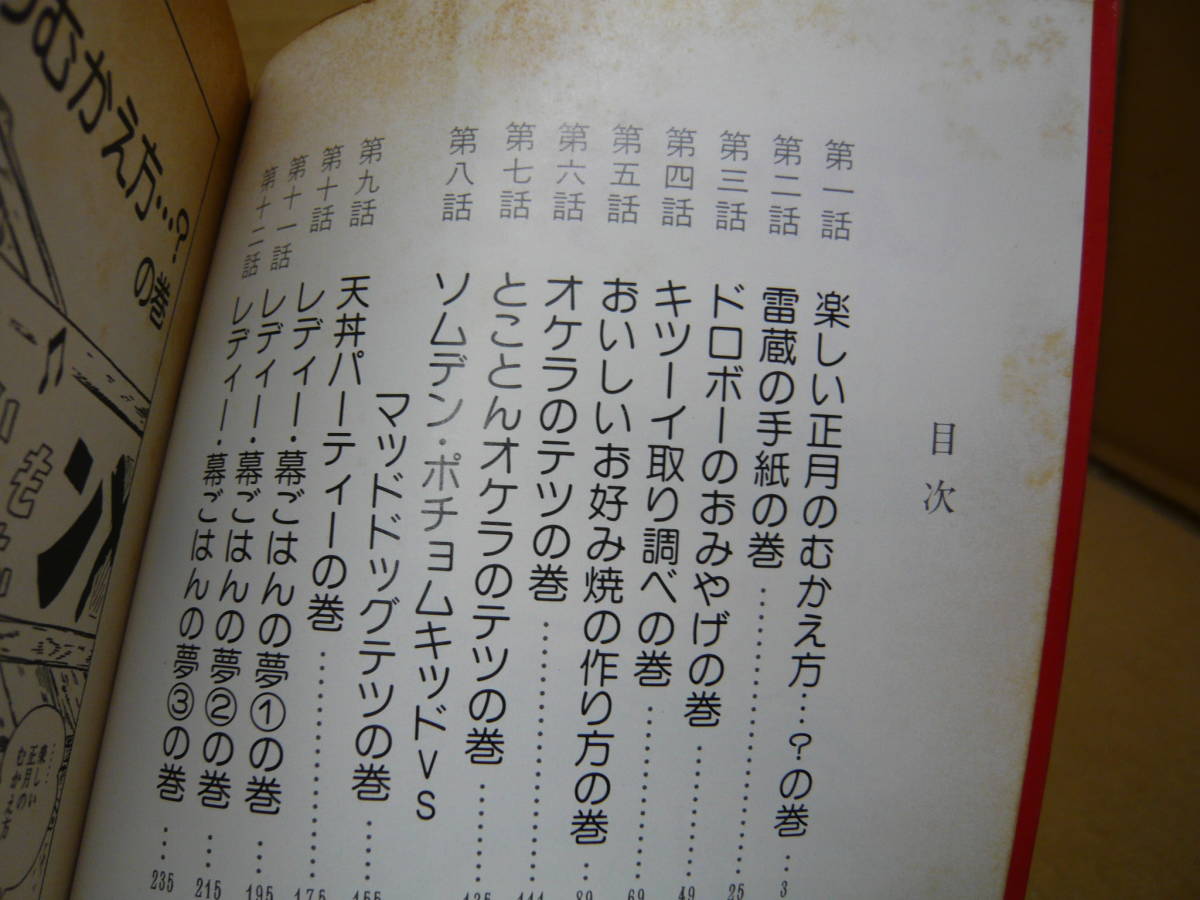 目次
第一話 楽しい正月のむかえ方…?の巻…3
第二話 雷蔵の手紙の巻…………25
第三話 ドロボーのおみやげの巻…………49
第四話 キツーイ取り調べの巻…………69
第五話 おいしいお好み焼の作り方の巻…89
第六話 オケラのテツの巻…………111
第七話 とことんオケラのテツの巻…………135
第八話 ソムデン・ポチョムキッドVS
マッドドッグテツの巻……155
第九話 天丼パーティーの巻…………175
第十話 レディー・幕ごはんの夢①の巻…195
第十一話 レディー・幕ごはんの夢②の巻…215
第十二話 レディー・幕ごはんの夢③の巻…235
むかえ方…?
の巻
……楽しい
正月の
むかえ方